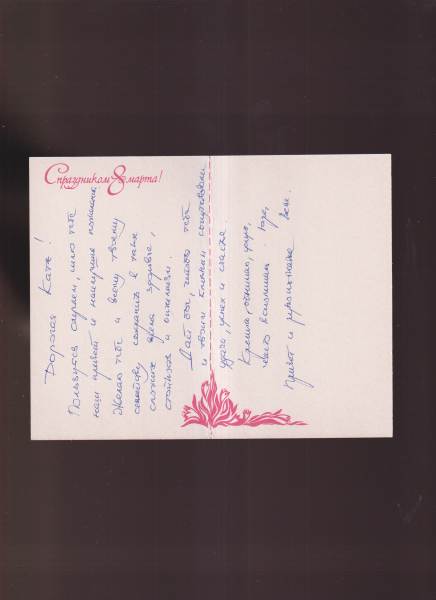 С праздником 8 марта!
Дорогая Катя!
Пользуюсь случаем, шлю тебе
наш привет и наилучшие пожелания.
Желаю тебе и всему твоему
семейству сохранить в такие
сложные времена здоровье,
стойкость и оптимизм.
Дай бог, чтобы тебе
и твоим близким сопутствовали
удача, успех и счастье
обнимаю, целую,
часто вспоминаю.
Привет и